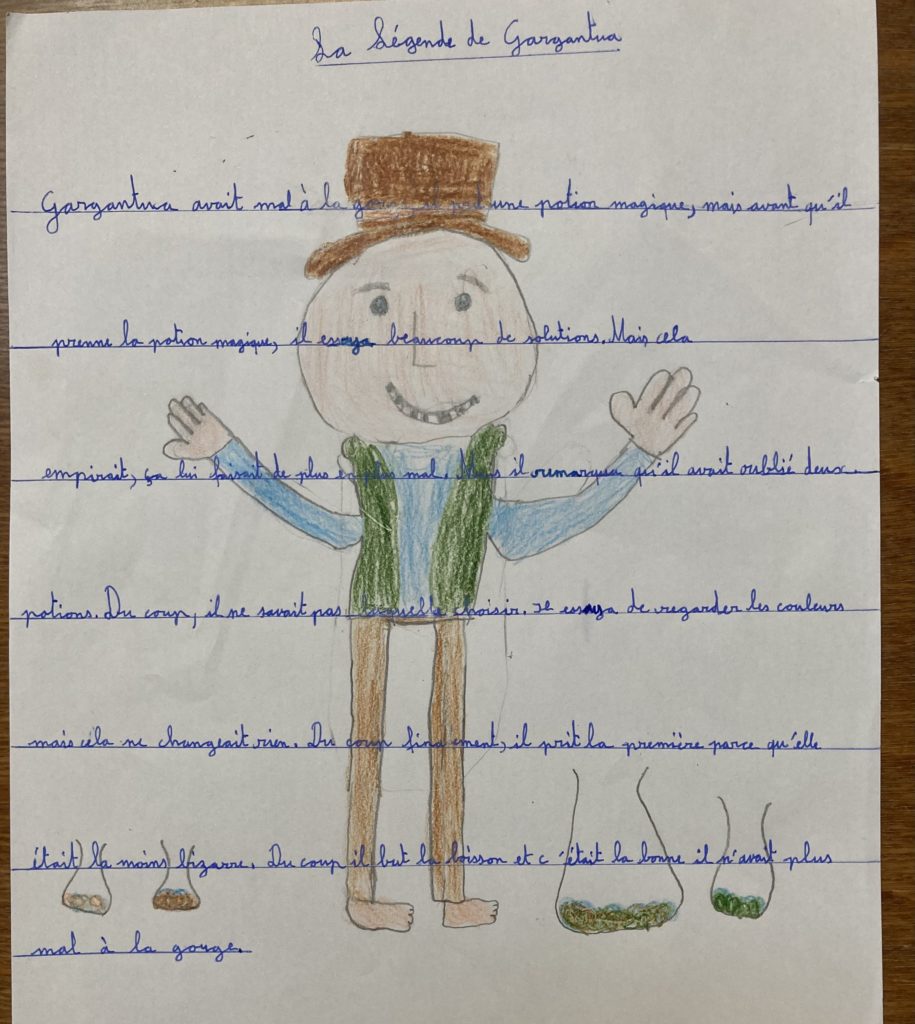 La Légende de Gargantua
Gargantua avait mal à la il une potion magique, mais avant qu'il
prenne la potion magique, il essaya beaucoup de solutions. Mais cela
empirait, ça lui faisait de plus en plus mal. Mais il remarqua qu'il avait oublié deux
potions. Du coup, il ne savait pas laquelle choisir. Il essaya de regarder les couleurs
mais cela ne changeait rien. Du coup finalement, il prit la première parce qu'elle
était la moins bizarre. Du coup il but la boisson et c'était la bonne il n'avait plus
mal à la gorge.